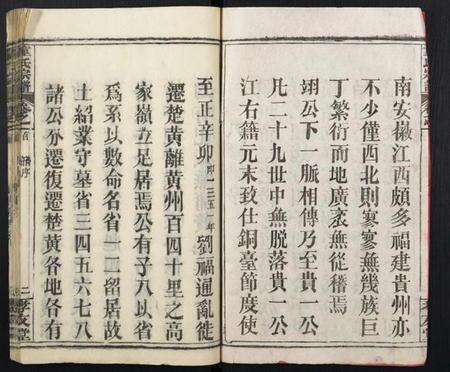 南安徽江西頗多福建貴州亦
不少惟西北則寥寥無幾族巨
丁繁衍而地廣袤無從稽焉
翊公下一脈相傳乃至貴一公
凡二十九世中無脫落貴一公
江右籍元末致仕銅臺節度使
至正辛卯劉福通亂徙
遷楚黃離黃州百四十里之高
家嶺立足居焉公有子八以省
爲系以數命名省一二留居故
土紹業守墓省三四五六七八
諸公分遷復遷楚黃各地各有